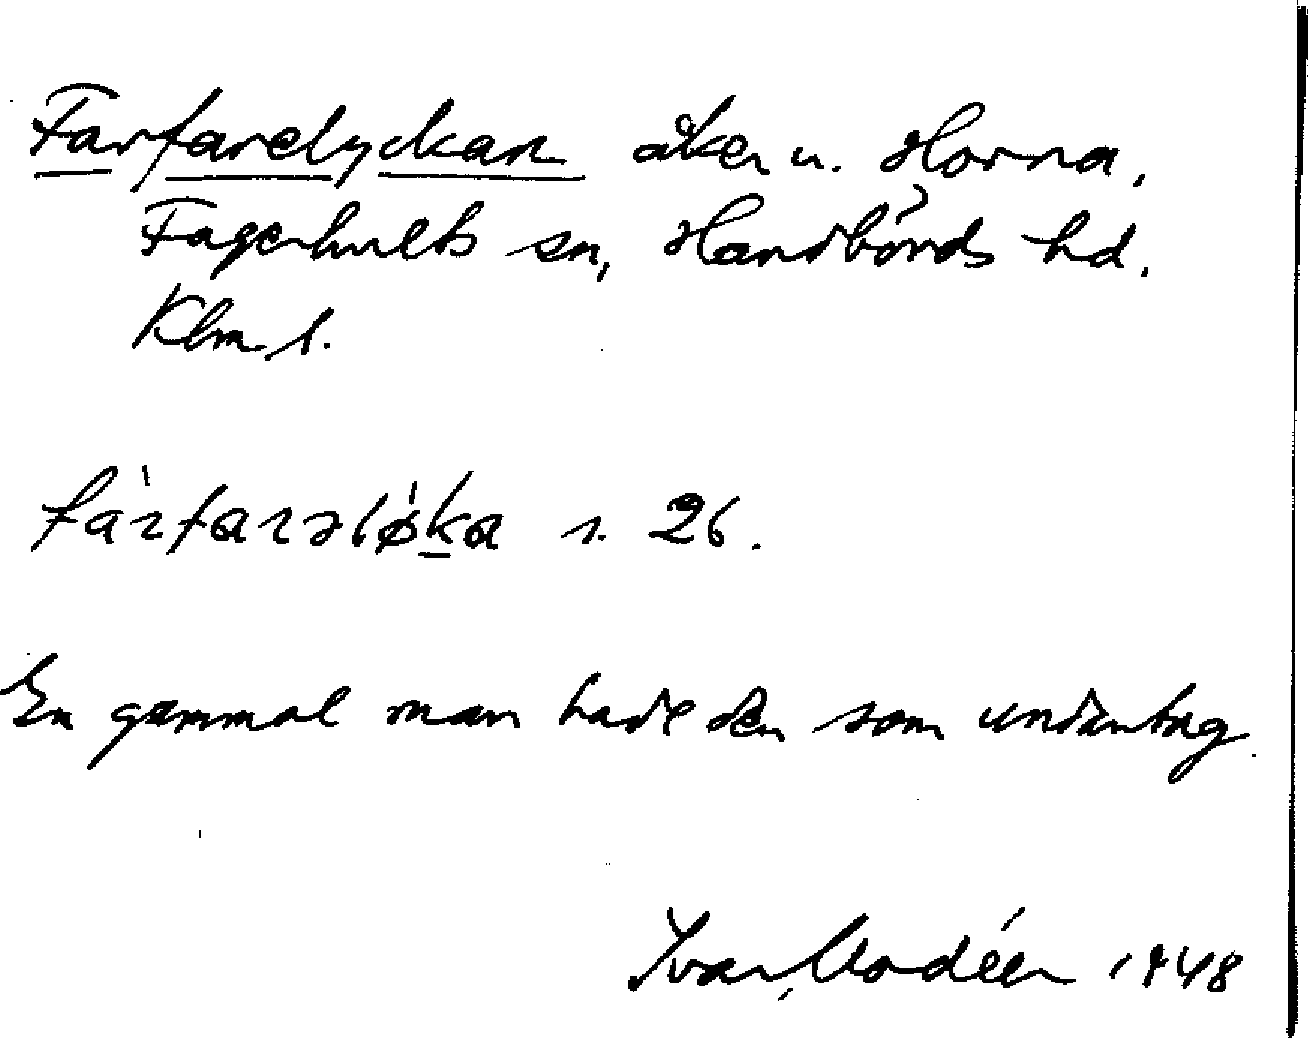 Farfarelyckan åker u. Horna,
Fagerhults sn, Handbörds hd.
Klm. l.
fàrfarəlǿka s. 26.
En gammal man hade den som undantag.
Ivar Modéer 1948